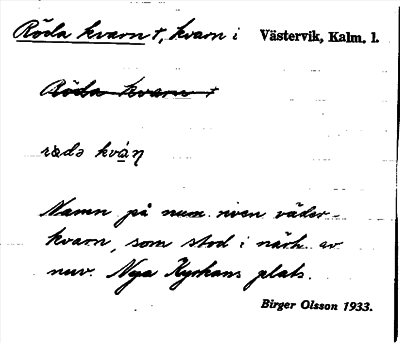 Röda kvarn †, kvarn i Västervik, Kalm. l.
Röda kvarn †
rødə kvàɳ
Namn på num. riven väder-
kvarn, som stod i närh. av
nuv. Nya Kyrkans plats.
Birger Olsson 1933.